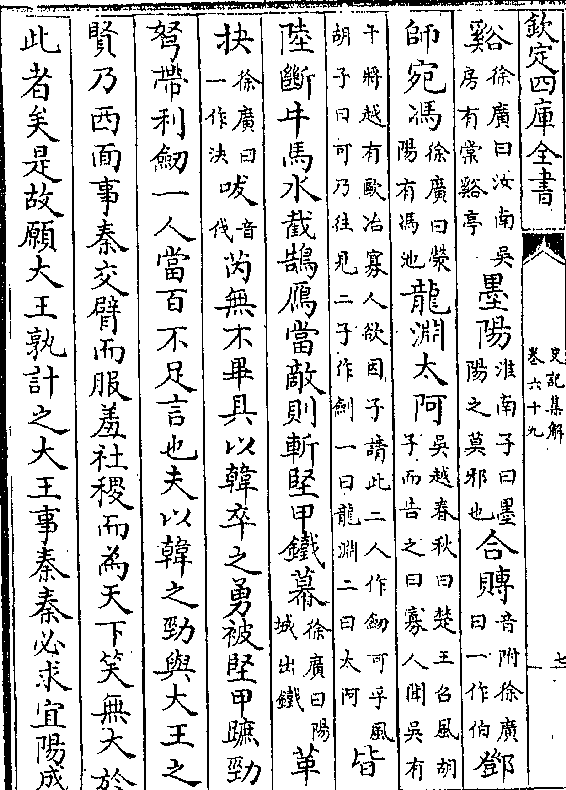 欽定四庫全書
史記集解
卷六十九
七
谿徐廣曰汝南吳房有棠谿亭墨陽淮南子曰墨陽之莫邪也合賻音附徐廣曰一作伯鄧
師宛馮徐廣曰滎陽有馮池龍淵太阿吳越春秋曰楚王召風胡子而告之曰寡人聞吳有
干將越有歐冶寡人欲因子請此二人作劒可乎風胡子曰可乃往見二子作劒一曰龍淵二曰太阿皆
陸斷牛馬水截鵠鴈當敵則斬堅甲鐵幕徐廣曰陽城出鐵革
抉徐廣曰一作決㕹音伐芮無不畢具以韓卒之勇被堅甲蹠勁
弩帶利劒一人當百不足言也夫以韓之勁與大王之
賢乃西面事秦交臂而服羞社稷而為天下笑無大於
此者矣是故願大王孰計之大王事秦秦必求宜陽成